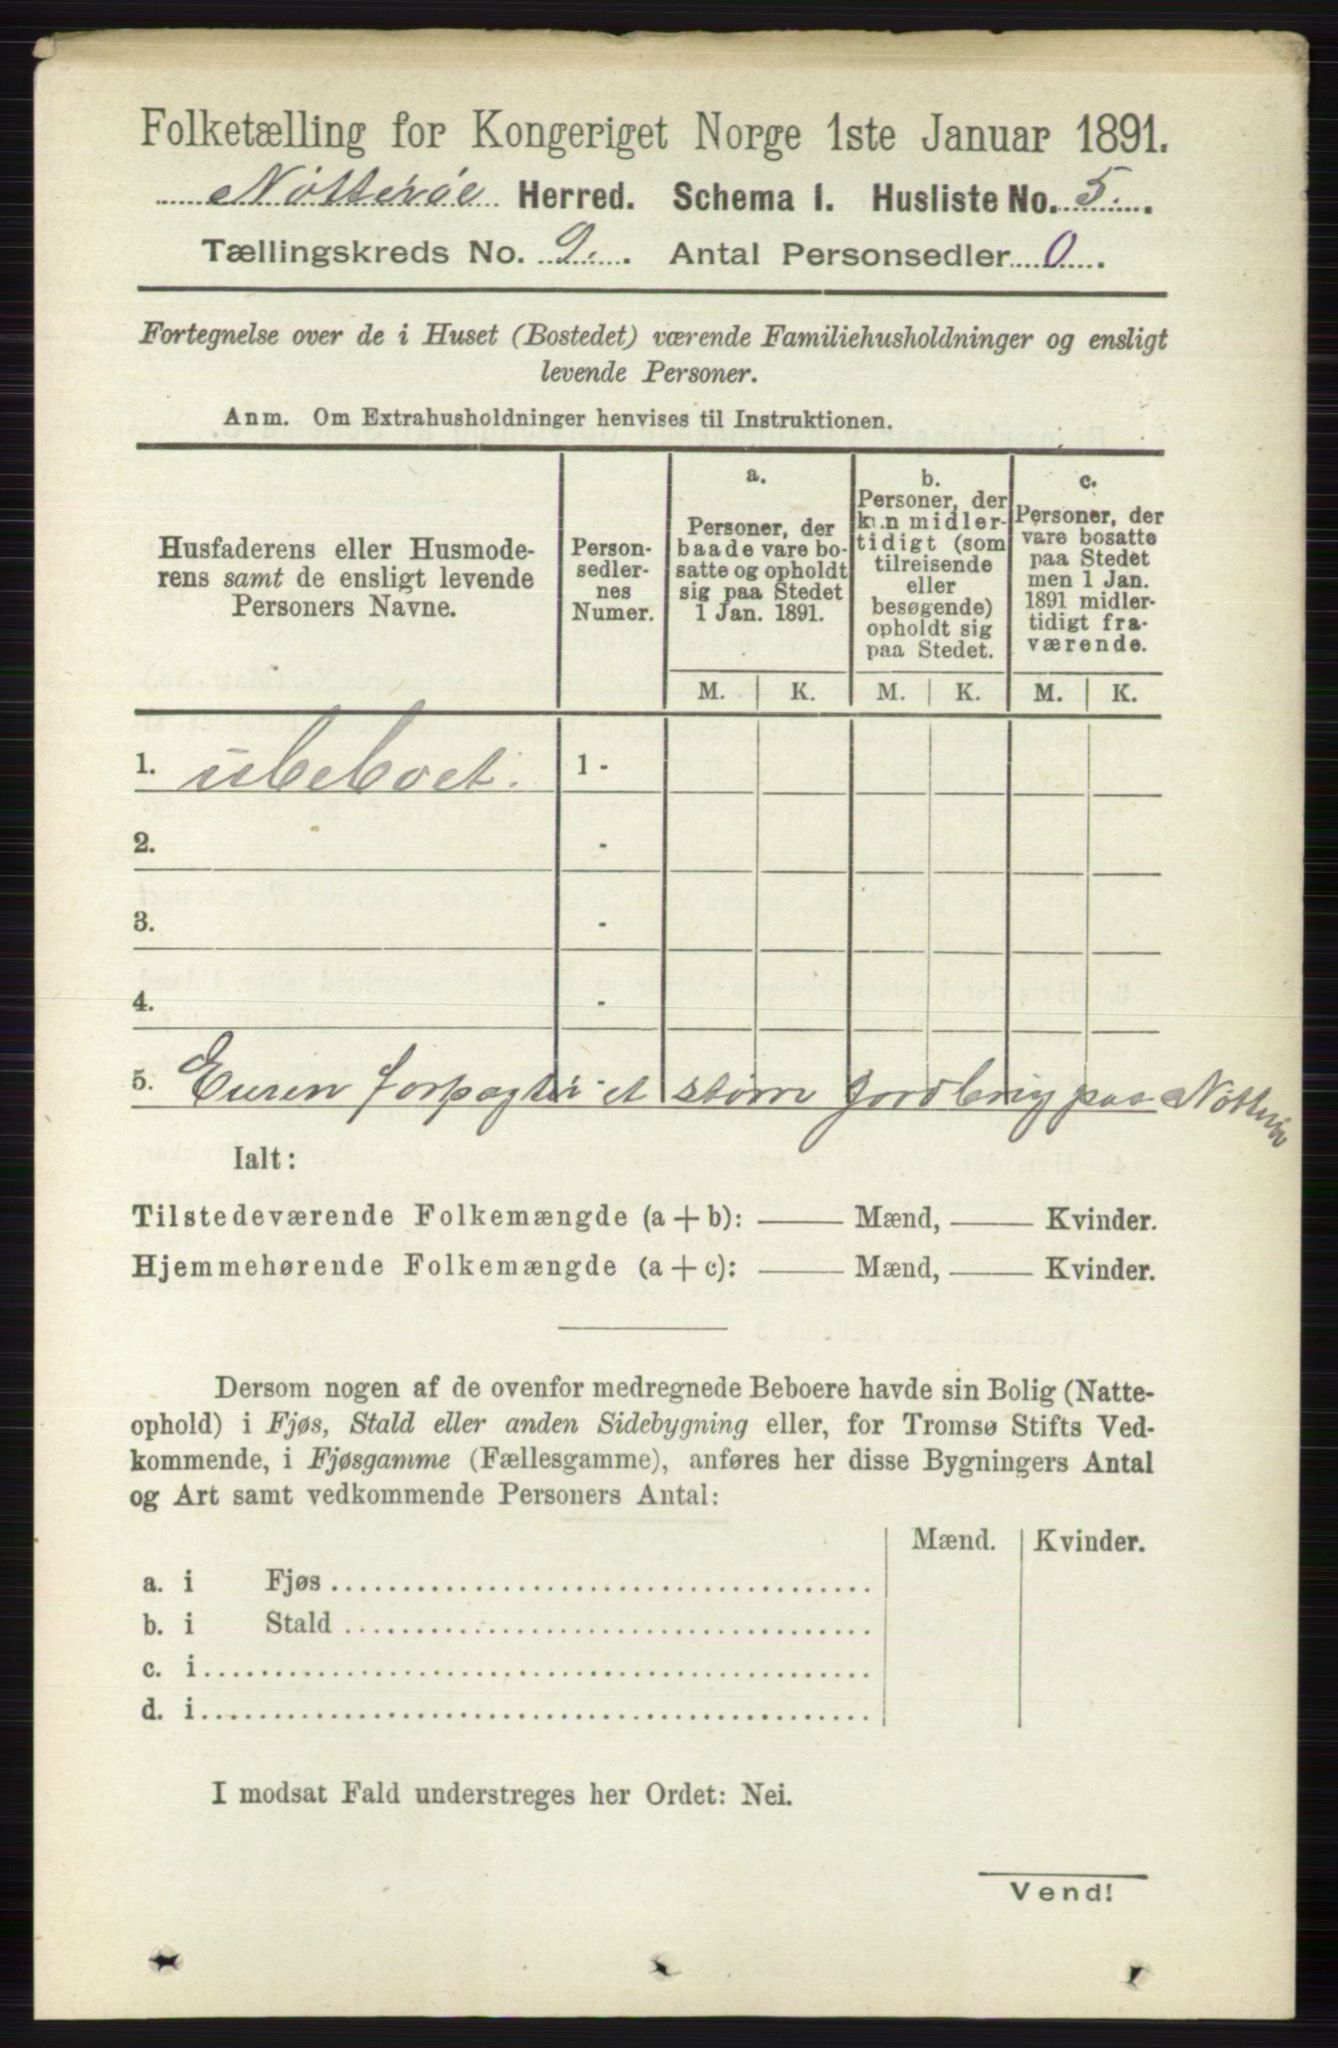 Folketælling for Kongeriget Norge 1ste Januar 1891.
Nøtterøe Herred. Schema I. Husliste No. 5.
Tællingskreds No. 9. Antal Personsedler 0.
Fortegnelse over de i Huset (Bostedet) værende Familiehusholdninger og ensligt
levende Personer.
Anm. Om Extrahusholdninger henvises til Instruktionen.
Husfaderens eller Husmode-
rens samt de ensligt levende
Personers Navne.
Person-
sedler-
nes
Numer.
a.
Personer, der
baade vare bo-
satte og opholdt
sig paa Stedet
1 Jan. 1891.
b.
Personer, der
kun midler-
tidigt (som
tilreisende
eller
besøgende)
opholdt sig
paa Stedet.
c.
Personer, der
vare bosatte
paa Stedet
men 1 Jan.
1891 midler-
tidigt fra-
værende.
M. K. M. K. M. K.
1. ubeboet. 1 -
2. -
3. -
4. -
5. forpagter et større Jordbrug paa Nøtterø
Ialt:
Tilstedeværende Folkemængde (a + b): —— Mænd, —— Kvinder.
Hjemmehørende Folkemængde (a + c): —— Mænd, —— Kvinder.
Dersom nogen af de ovenfor medregnede Beboere havde sin Bolig (Natte-
ophold) i Fjøs, Stald eller anden Sidebygning eller, for Tromsø Stifts Ved-
kommende, i Fjøsgamme (Fællesgamme), anføres her disse Bygningers Antal
og Art samt vedkommende Personers Antal:
Mænd. Kvinder.
a. i Fjøs
b. i Stald
c. i
d. i
I modsat Fald understreges her Ordet: Nei.
Vend!